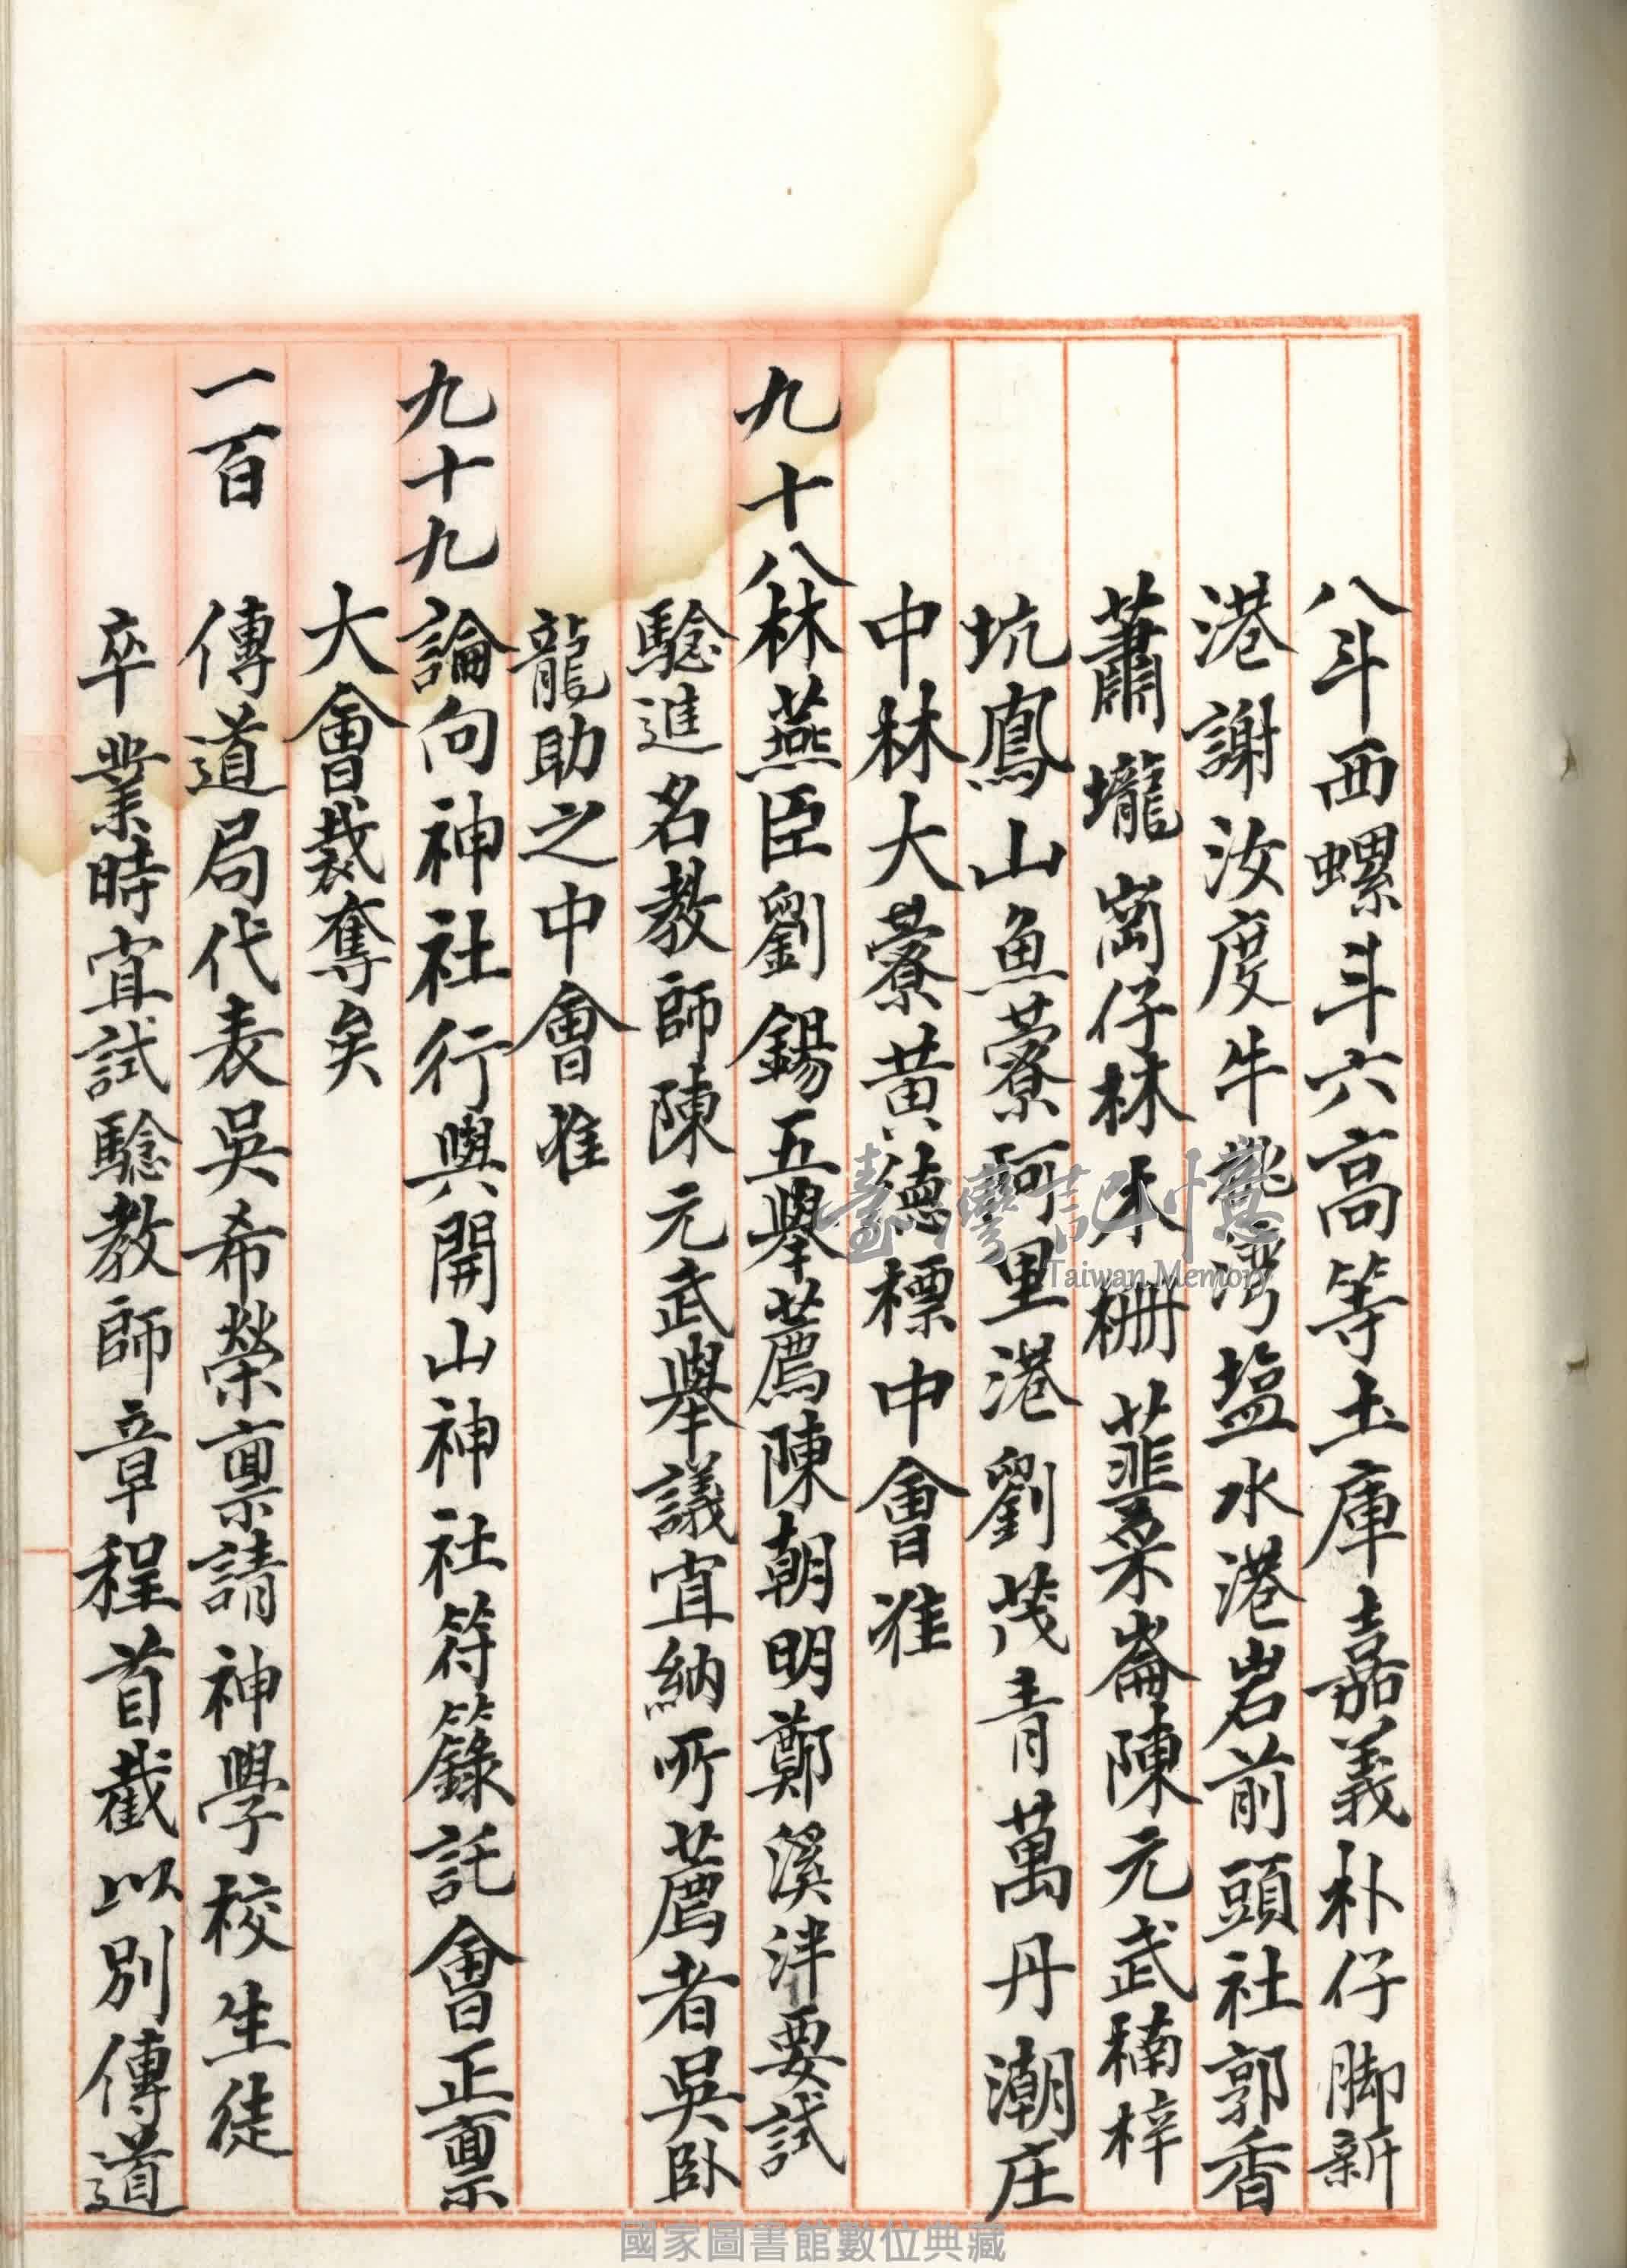 八斗西螺斗六高等土庫嘉義朴仔脚新
港謝汝度牛挑灣塩水港岩前頭社郭香
蕭壠崗仔林木柵韮菜崙陳元武楠梓
坑鳳山魚藔阿里港劉茂青萬丹潮庄
中林大藔黃德標中會准
九十八林燕臣劉錫五舉薦陳朝明鄭溪泮要試
驗進名教師陳元武舉議宜納所薦者吳臥
龍助之中會准
九十九論向神社行與開山神社符籙託會正禀
大會裁奪矣
一百 傳道局代表吳希榮禀請神學校生徒
卒業時宜試驗教師章程首截以別傳道
臺灣記憶
Taiwan Memory
國家圖書館數位典藏